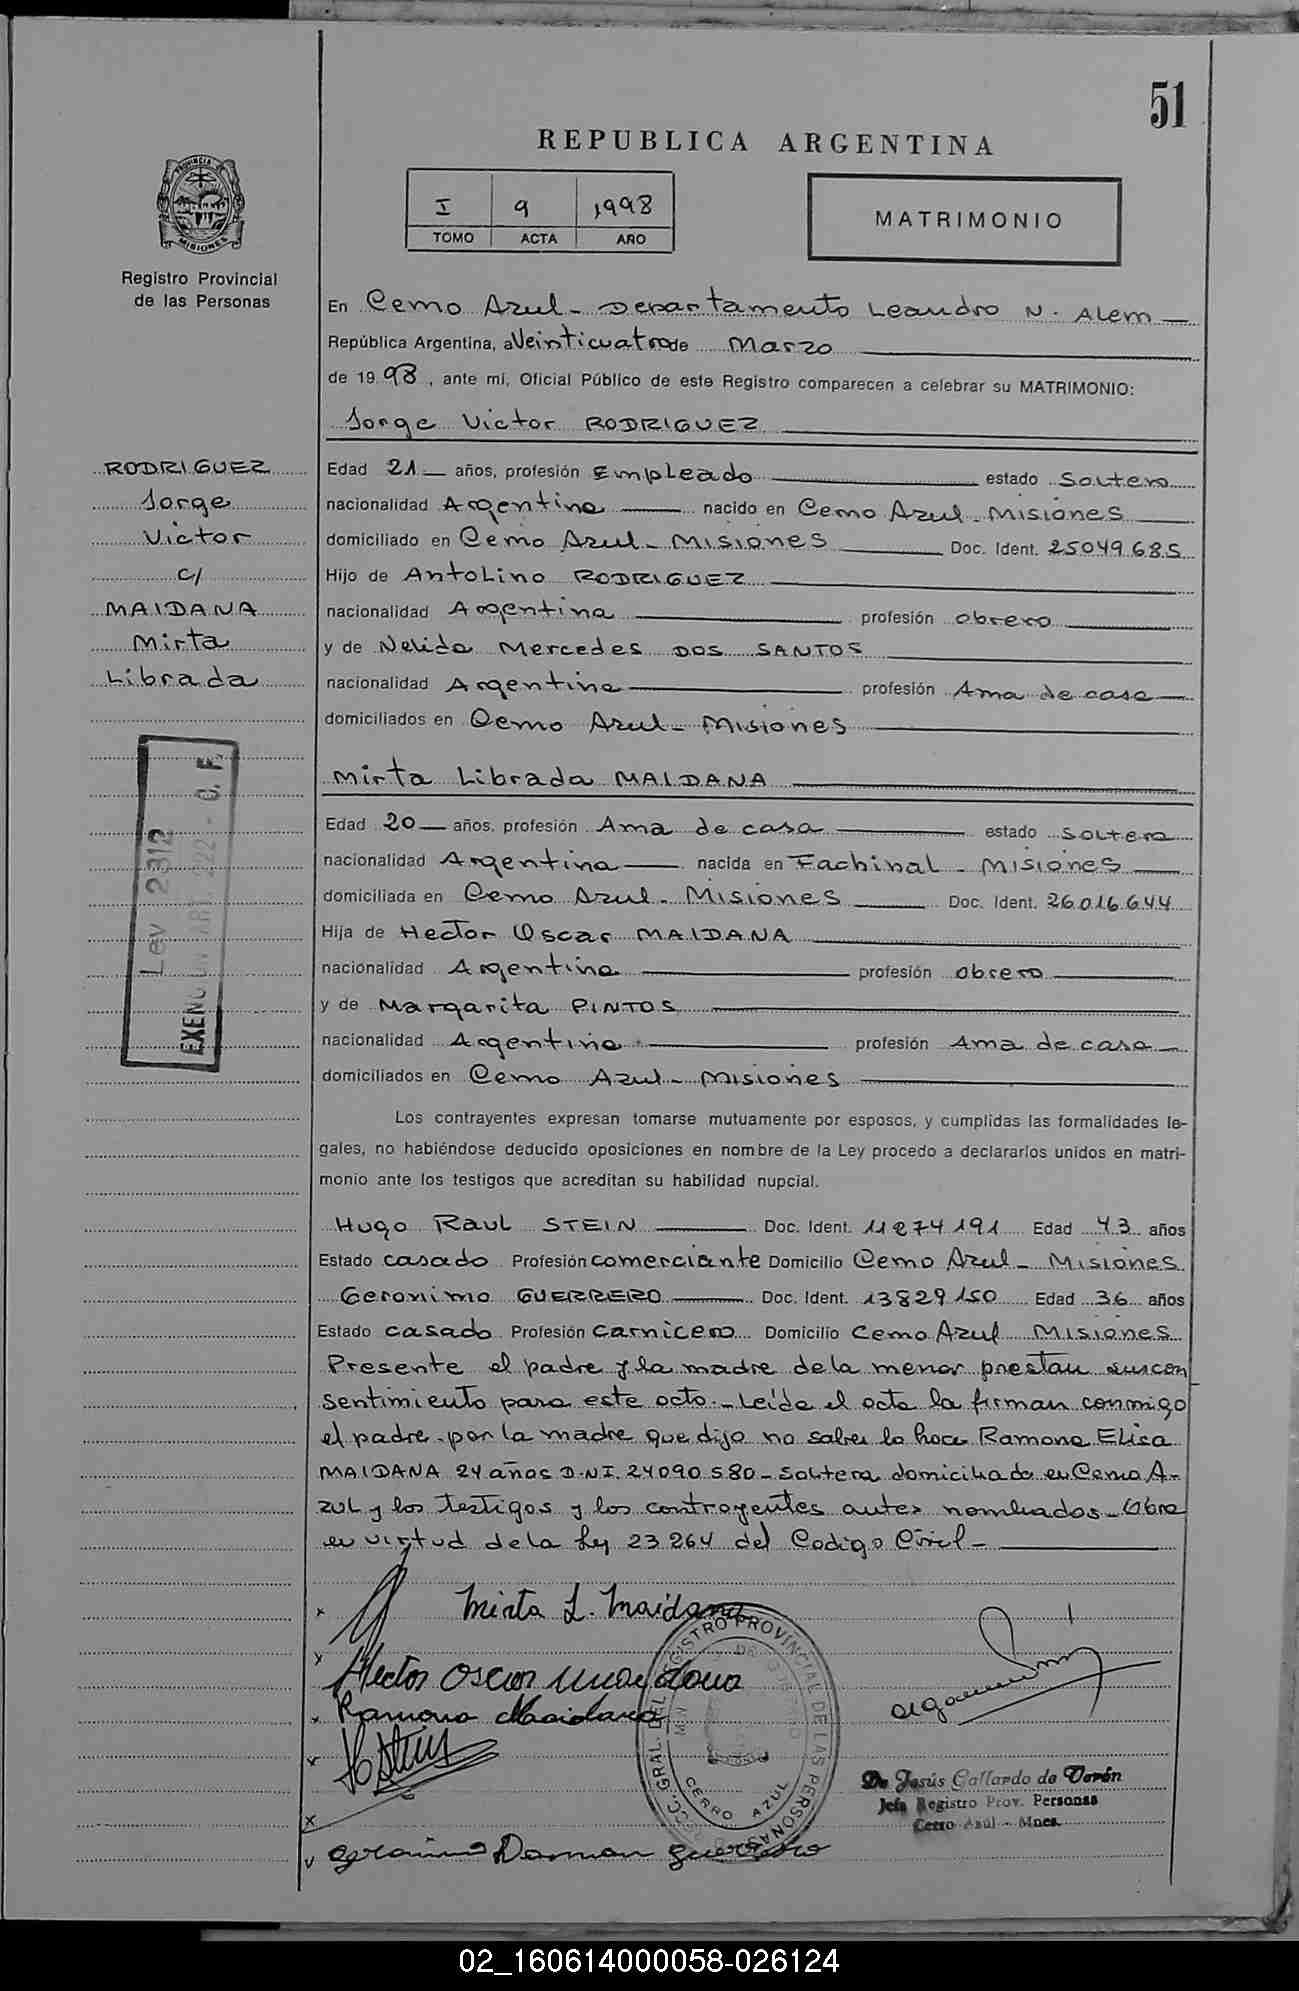 51
REPUBLICA ARGENTINA
I 9 1998
TOMO ACTA AÑO
MATRIMONIO
PROVINCIA DE MISIONES
Registro Provincial
de las Personas
En Cerro Azul - Departamento Leandro N. Alem
República Argentina, a Veinticuatro de Marzo
de 19 98, ante mí, Oficial Público de este Registro comparecen a celebrar su MATRIMONIO:
Jorge Victor RODRIGUEZ
RODRIGUEZ
Jorge
Victor
c/
MAIDANA
Mirta
Librada
Edad 21 años, profesión Empleado estado Soltero
nacionalidad Argentina nacido en Cerro Azul - Misiones
domiciliado en Cerro Azul - Misiones Doc. Ident. 25049685
Hijo de Antolino RODRIGUEZ
nacionalidad Argentina profesión obrero
y de Nelida Mercedes DOS SANTOS
nacionalidad Argentina profesión Ama de casa
domiciliados en Cerro Azul - Misiones
Mirta Librada MAIDANA
Edad 20 años, profesión Ama de casa estado soltera
nacionalidad Argentina nacida en Fachinal - Misiones
domiciliada en Cerro Azul - Misiones Doc. Ident. 26016644
Hija de Hector Oscar MAIDANA
nacionalidad Argentina profesión obrero
y de Margarita PINTOS
nacionalidad Argentina profesión Ama de casa
domiciliados en Cerro Azul - Misiones
Ley 2312
EXENC ART. 222 - C. F.
Los contrayentes expresan tomarse mutuamente por esposos, y cumplidas las formalidades le-
gales, no habiéndose deducido oposiciones en nombre de la Ley procedo a declararlos unidos en matri-
monio ante los testigos que acreditan su habilidad nupcial.
Hugo Raul STEIN Doc. Ident. 11274191 Edad 43 años
Estado casado Profesión comerciante Domicilio Cerro Azul - Misiones
Geronimo GUERRERO Doc. Ident. 13829150 Edad 36 años
Estado casado Profesión carnicero Domicilio Cerro Azul Misiones
Presente el padre y la madre de la menor prestan su con
sentimiento para este acto.- Leída el acta la firman conmigo
el padre - por la madre que dijo no saber lo hace Ramona Elisa
MAIDANA 24 años D.N.I. 24090580 - Soltera domiciliada en Cerro A-
zul y los testigos y los contrayentes antes nombrados - Obra
en virtud de la Ley 23264 del Codigo Civil -
x Mirta L. Maidana
x Hector Oscar Maidana
x Ramona Maidana
x H Stein
x
Geronimo Damian Guerrero
REGISTRO PROVINCIAL DE LAS PERSONAS
CERRO AZUL
De Jesús Gallardo de Verón
Jefa Registro Prov. Personas
Cerro Azul - Mnes.
02_160614000058-026124